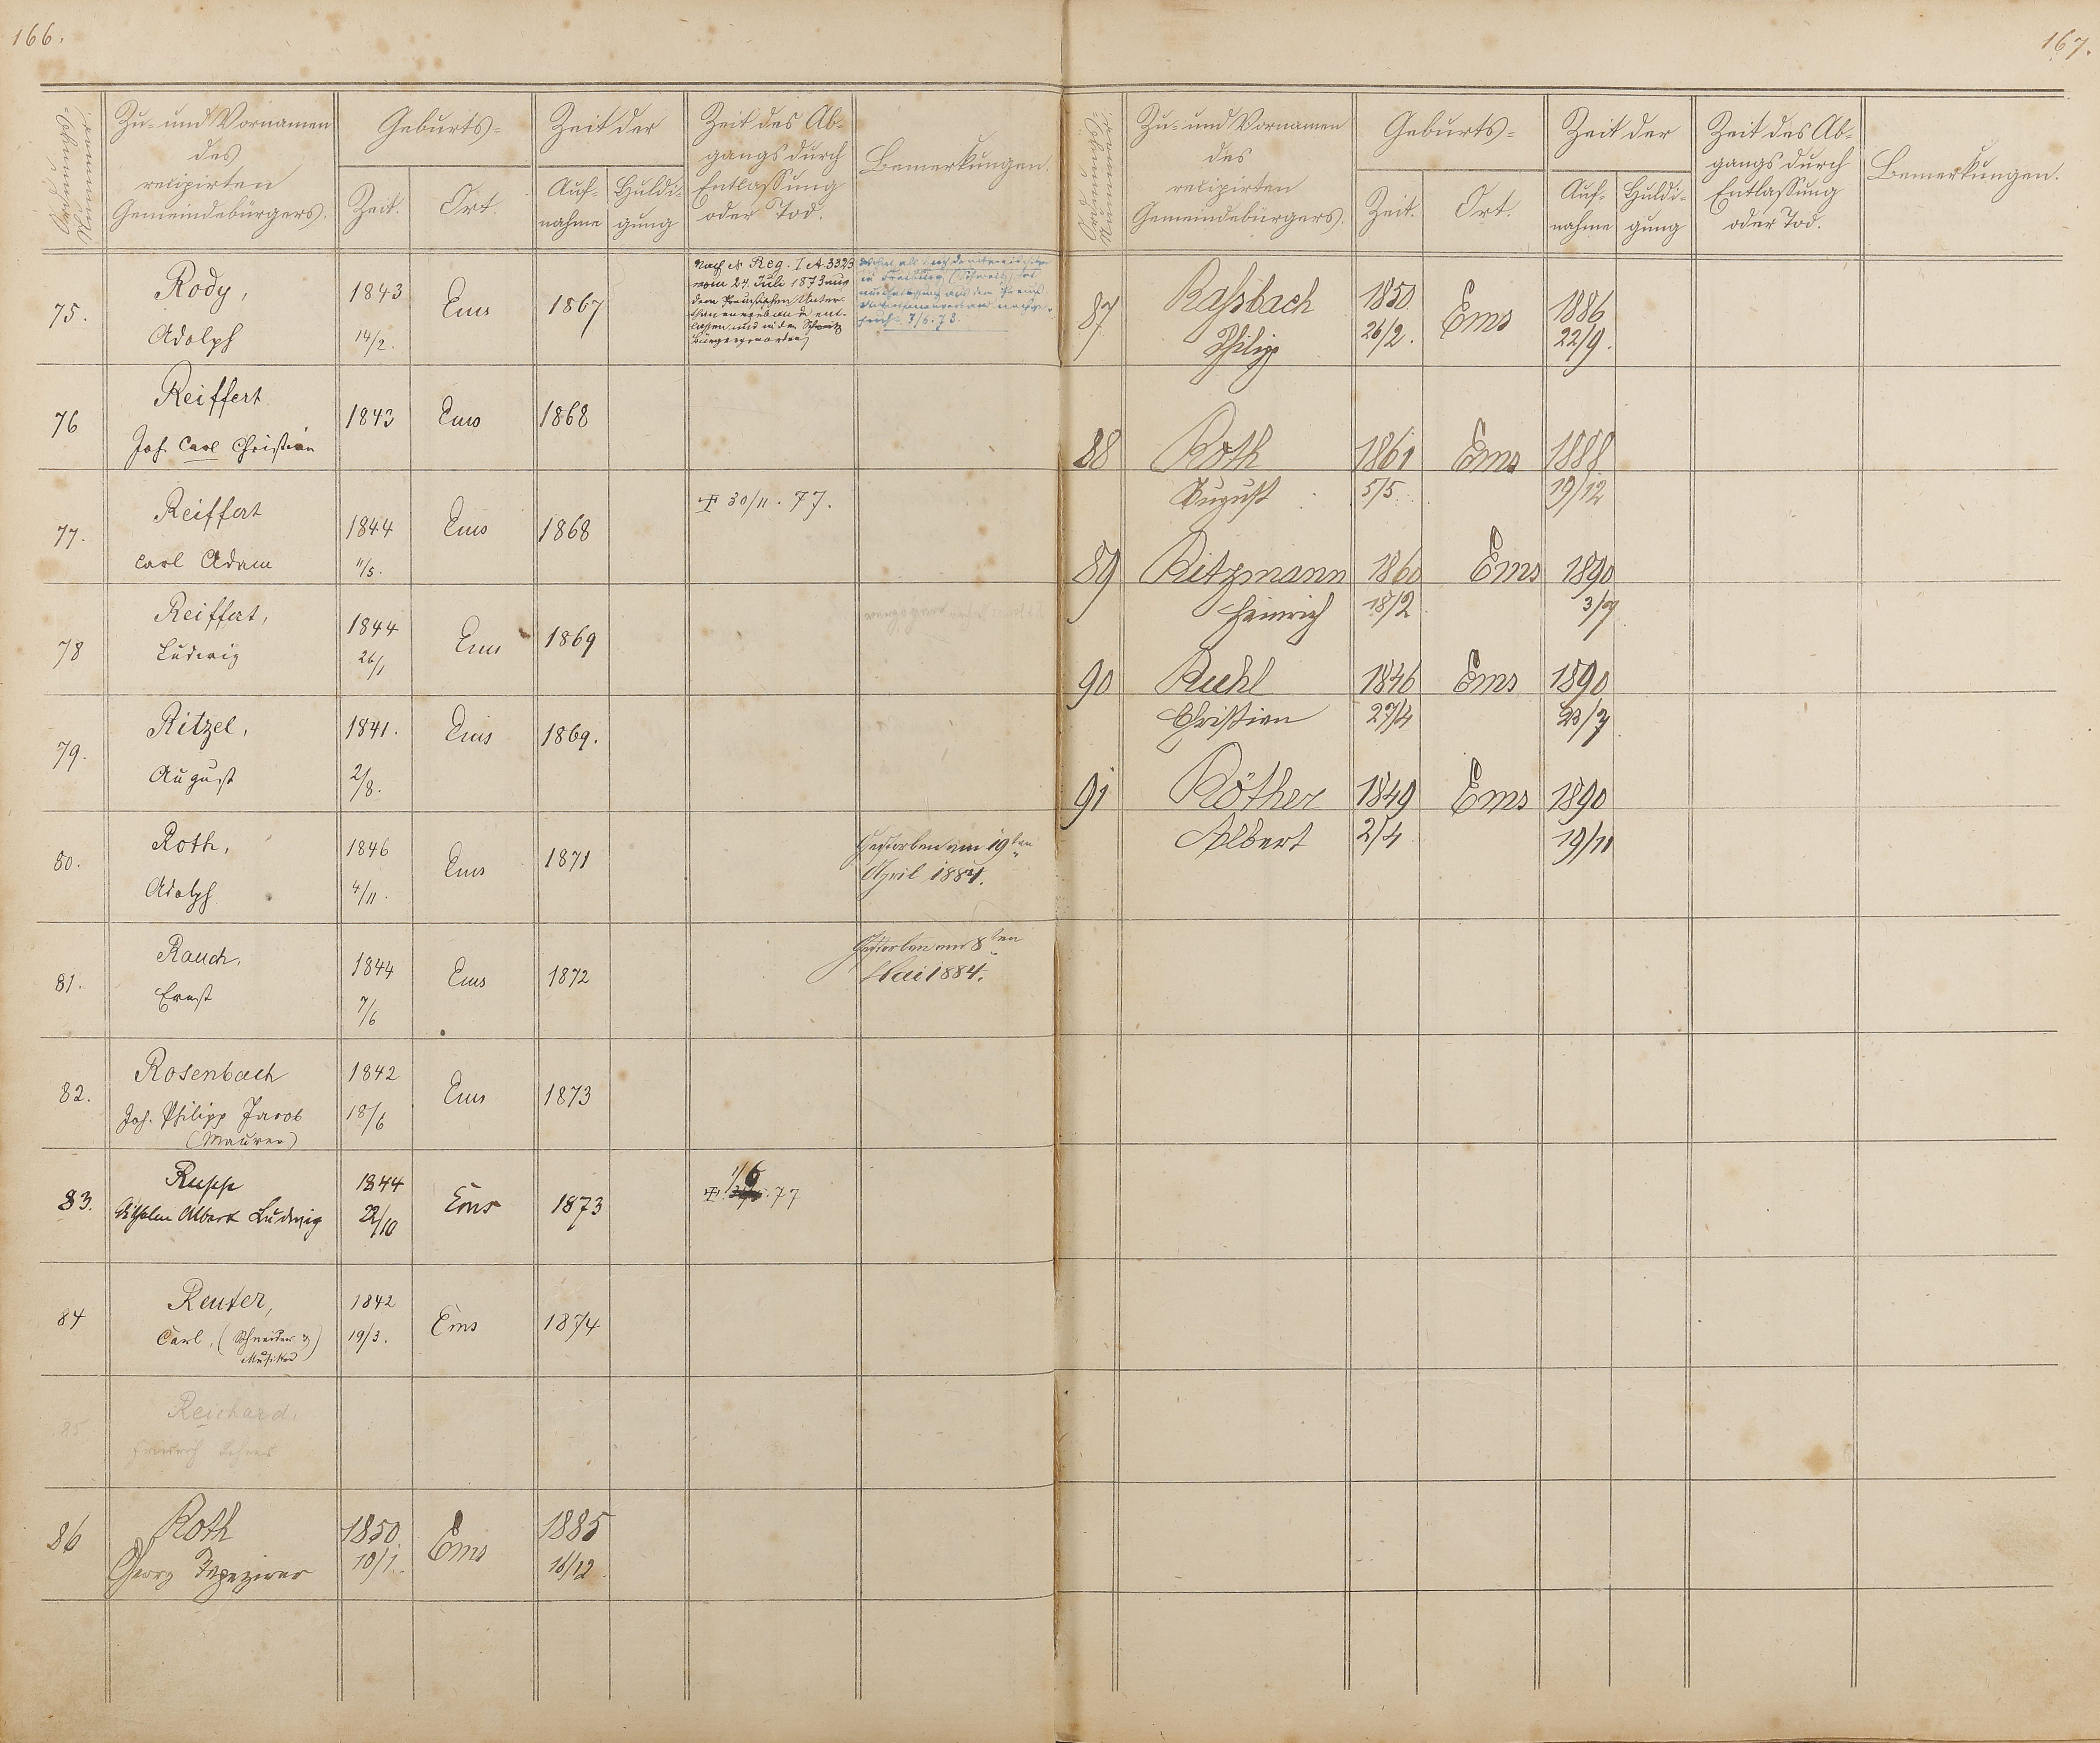 166.
Zu- und Vornamen
des
recipirten
Gemeindebürgers.
Geburts-
Zeit.
Ort.
Zeit der
Auf-
nahme
Huldi-
gung
Zeit des Ab-
gangs durch
Entlassung
oder Tod.
Bemerkungen.
75.
Rody,
Adolph
1843
14/2.
Ems
1867
Nach  Reg. I A 3323
vom 24. Juli 1873 aus
dem Preußischen Unter-
thanenverband ent-
lassen und in der Schweiz
Bürger geworden
in Freiburg (Schweiz)
7/6.73.
76
Reiffert
Joh. Carl Christian
1843
Ems
1868
77.
Reiffert
Carl Adam
1844
11/5.
Ems
1868
† 30/11. 77.
78
Reiffert,
Ludwig
1844
26/1
Ems
1869
79.
Ritzel,
August
1841.
2/8.
Ems
1869.
80.
Roth,
Adolph
1846
4/11.
Ems
1871
Gestorben am 19ten
April 1884.
81.
Rauch,
Ernst
1844
7/6
Ems
1872
Gestorben am 8ten
Mai 1884.
82.
Rosenbach
Joh. Philipp Jacob
(Maurer)
1842
18/6
Ems
1873
83.
Rupp
Wilhelm Albert Ludwig
1844
22/10
Ems
1873
† 1/6 77
84
Reuter,
Carl, (Schneider &
Musiker)
1842
19/3.
Ems
1874
85
Reichard,
Friedrich
86
Roth
Georg Tapezirer
1850
10/1.
Ems
1885
16/12
167.
Zu- und Vornamen
des
recipirten
Gemeindebürgers.
Geburts-
Zeit.
Ort.
Zeit der
Auf-
nahme
Huldi-
gung
Zeit des Ab-
gangs durch
Entlassung
oder Tod.
Bemerkungen.
87
Raßbach
Philipp
1850
26/2.
Ems
1886
22/9.
88
Roth
August
1861
5/5.
Ems
1888
19/12
89
Ritzmann
Heinrich
1860
18/2
Ems
1890
3/7
90
Ruhl
Christian
1846
27/4
Ems
1890
23/7
91
Röther
Albert
1849
2/4
Ems
1890
19/11